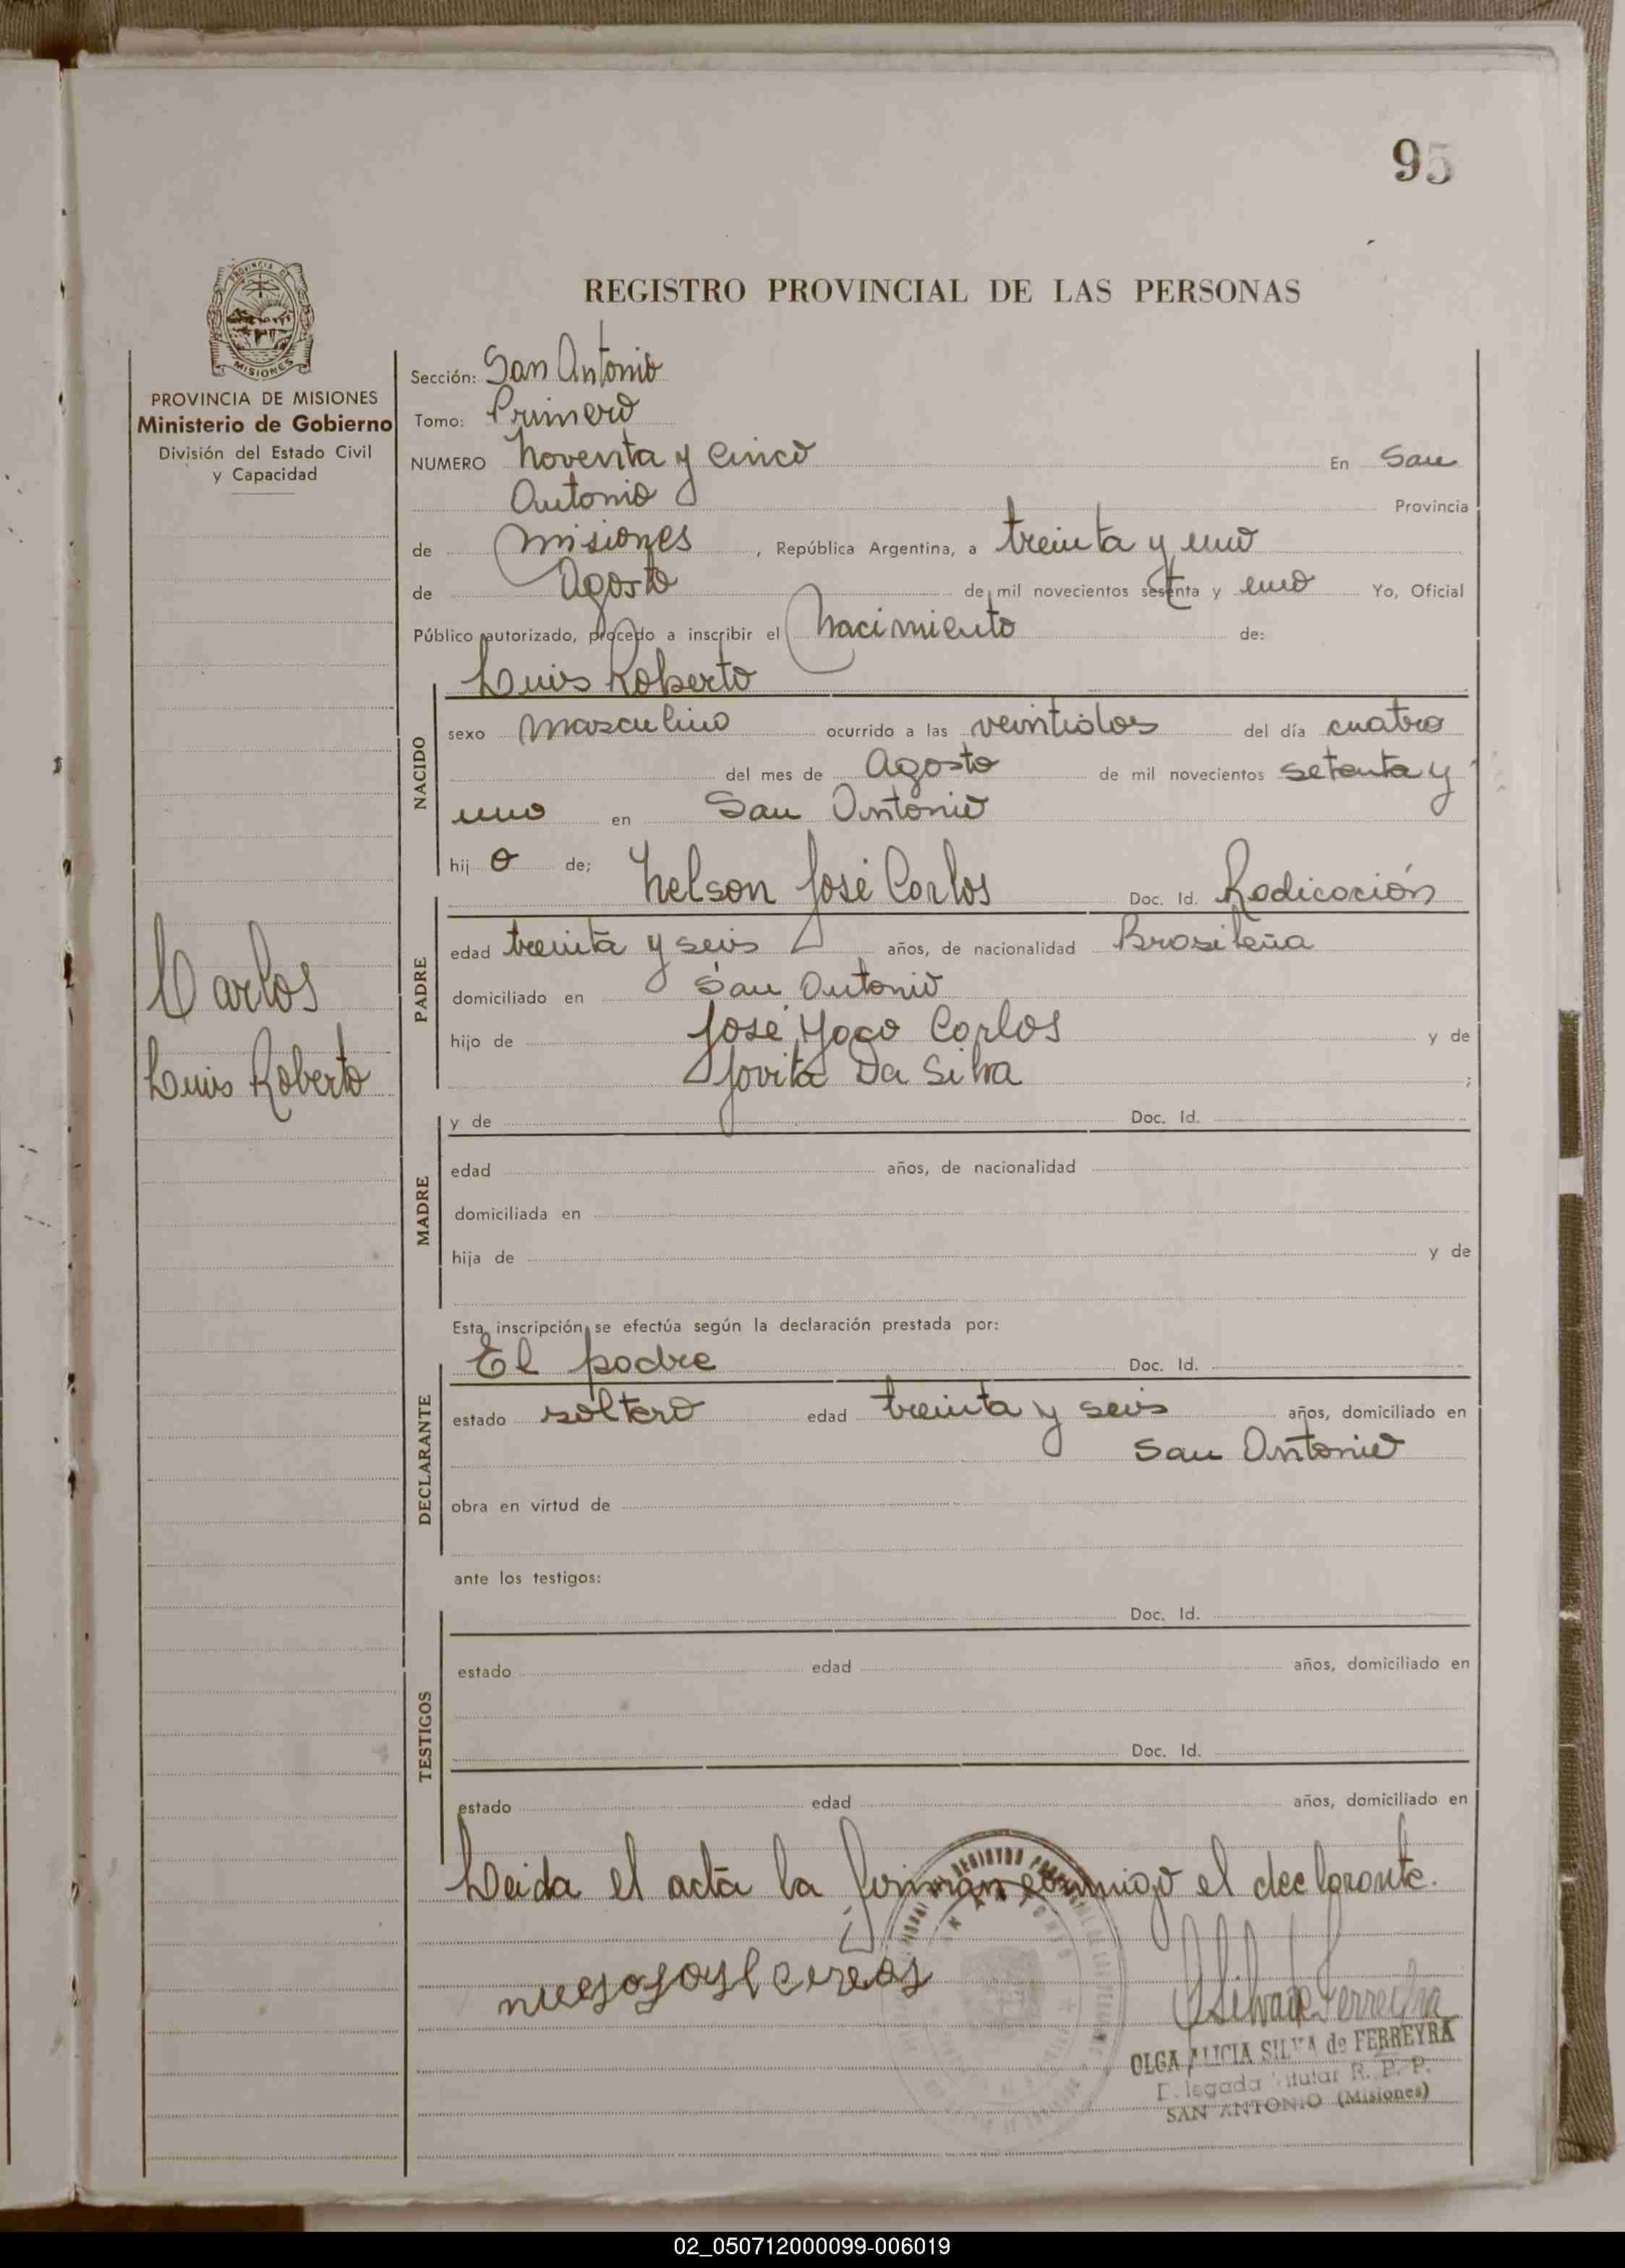 95
PROVINCIA DE
MISIONES
PROVINCIA DE MISIONES
Ministerio de Gobierno
División del Estado Civil
y Capacidad
Carlos
Luis Roberto
REGISTRO PROVINCIAL DE LAS PERSONAS
Sección: San Antonio
Tomo: Primero
NUMERO Noventa y Cinco En San
Antonio Provincia
de Misiones , República Argentina, a treinta y uno
de Agosto de mil novecientos setenta y uno Yo, Oficial
Público autorizado, procedo a inscribir el Nacimiento de:
Luis Roberto
NACIDO
sexo Masculino ocurrido a las veintidos del día cuatro
del mes de Agosto de mil novecientos setenta y
uno en San Antonio
hij o de; Nelson José Carlos Doc. Id. Radicación
PADRE
edad treinta y seis años, de nacionalidad Brasileña
domiciliado en San Antonio
hijo de José Carlos y de
Jovita Da Silva ;
MADRE
y de Doc. Id.
edad años, de nacionalidad
domiciliada en
hija de y de
Esta inscripción se efectúa según la declaración prestada por:
El padre Doc. Id.
DECLARANTE
estado soltero edad treinta y seis años, domiciliado en
San Antonio
obra en virtud de
ante los testigos:
TESTIGOS
Doc. Id.
estado edad años, domiciliado en
Doc. Id.
estado edad años, domiciliado en
Leida el acta la firman conmigo el declarante.
OSilva de Ferreyra
OLGA ALICIA SILVA de FERREYRA
Delegada Titular R. P. P.
SAN ANTONIO (Misiones)
02_050712000099-006019